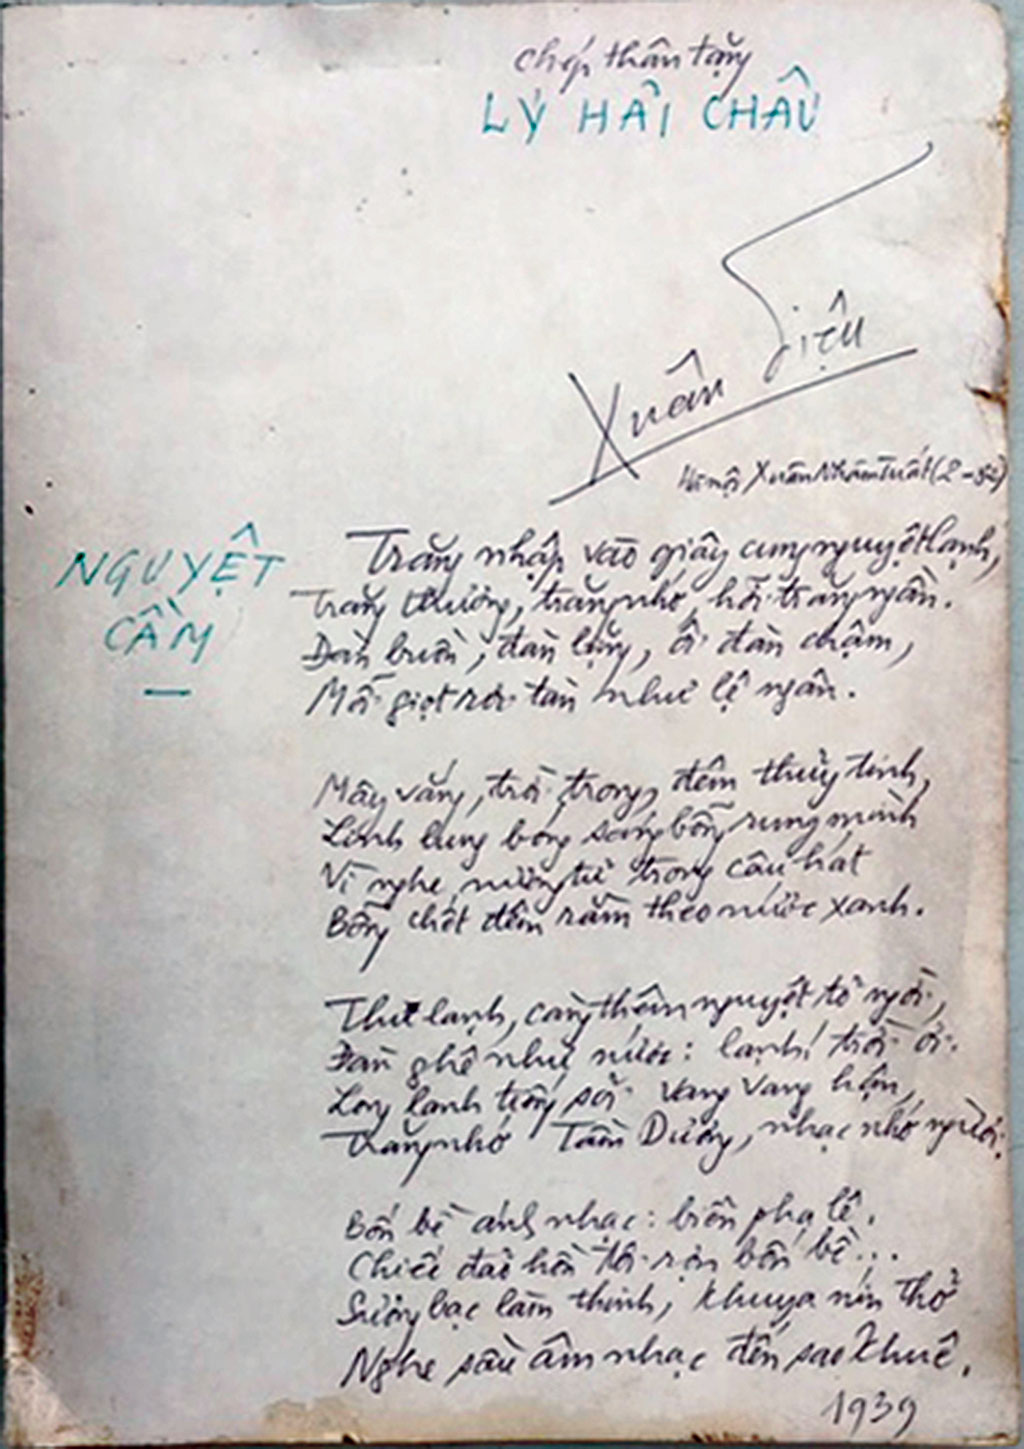 chép thân tặng
LÝ HẢI CHÂU
Xuân Diệu
Hà nội Xuân Nhâm Tuất (2-82)
NGUYỆT
CẦM
Trăng nhập vào giây cung nguyệt lạnh,
Trăng thương, trăng nhớ, hỡi trăng ngần.
Đàn buồn, đàn lặng, ôi đàn chậm,
Mỗi giọt rơi tàn như lệ ngân.
Mây vắng, trời trong, đêm thuỷ tinh,
Linh lung bóng sáng bỗng rung mình
Vì nghe nương tử trong câu hát
Bỗng chết đêm rằm theo nước xanh.
Thu lạnh, càng thêm nguyệt tỏ ngời,
Đàn ghê như nước: lạnh! trời ơi.
Long lanh tiếng sỏi vang vang hận,
Trăng nhớ Tầm Dương, nhạc nhớ người.
Bốn bề ánh nhạc: biển pha lê.
Chiếc đảo hồn tôi rợn bốn bề...
Sương bạc làm thinh, khuya nín thở
Nghe sầu âm nhạc đến sao Khuê.
1939